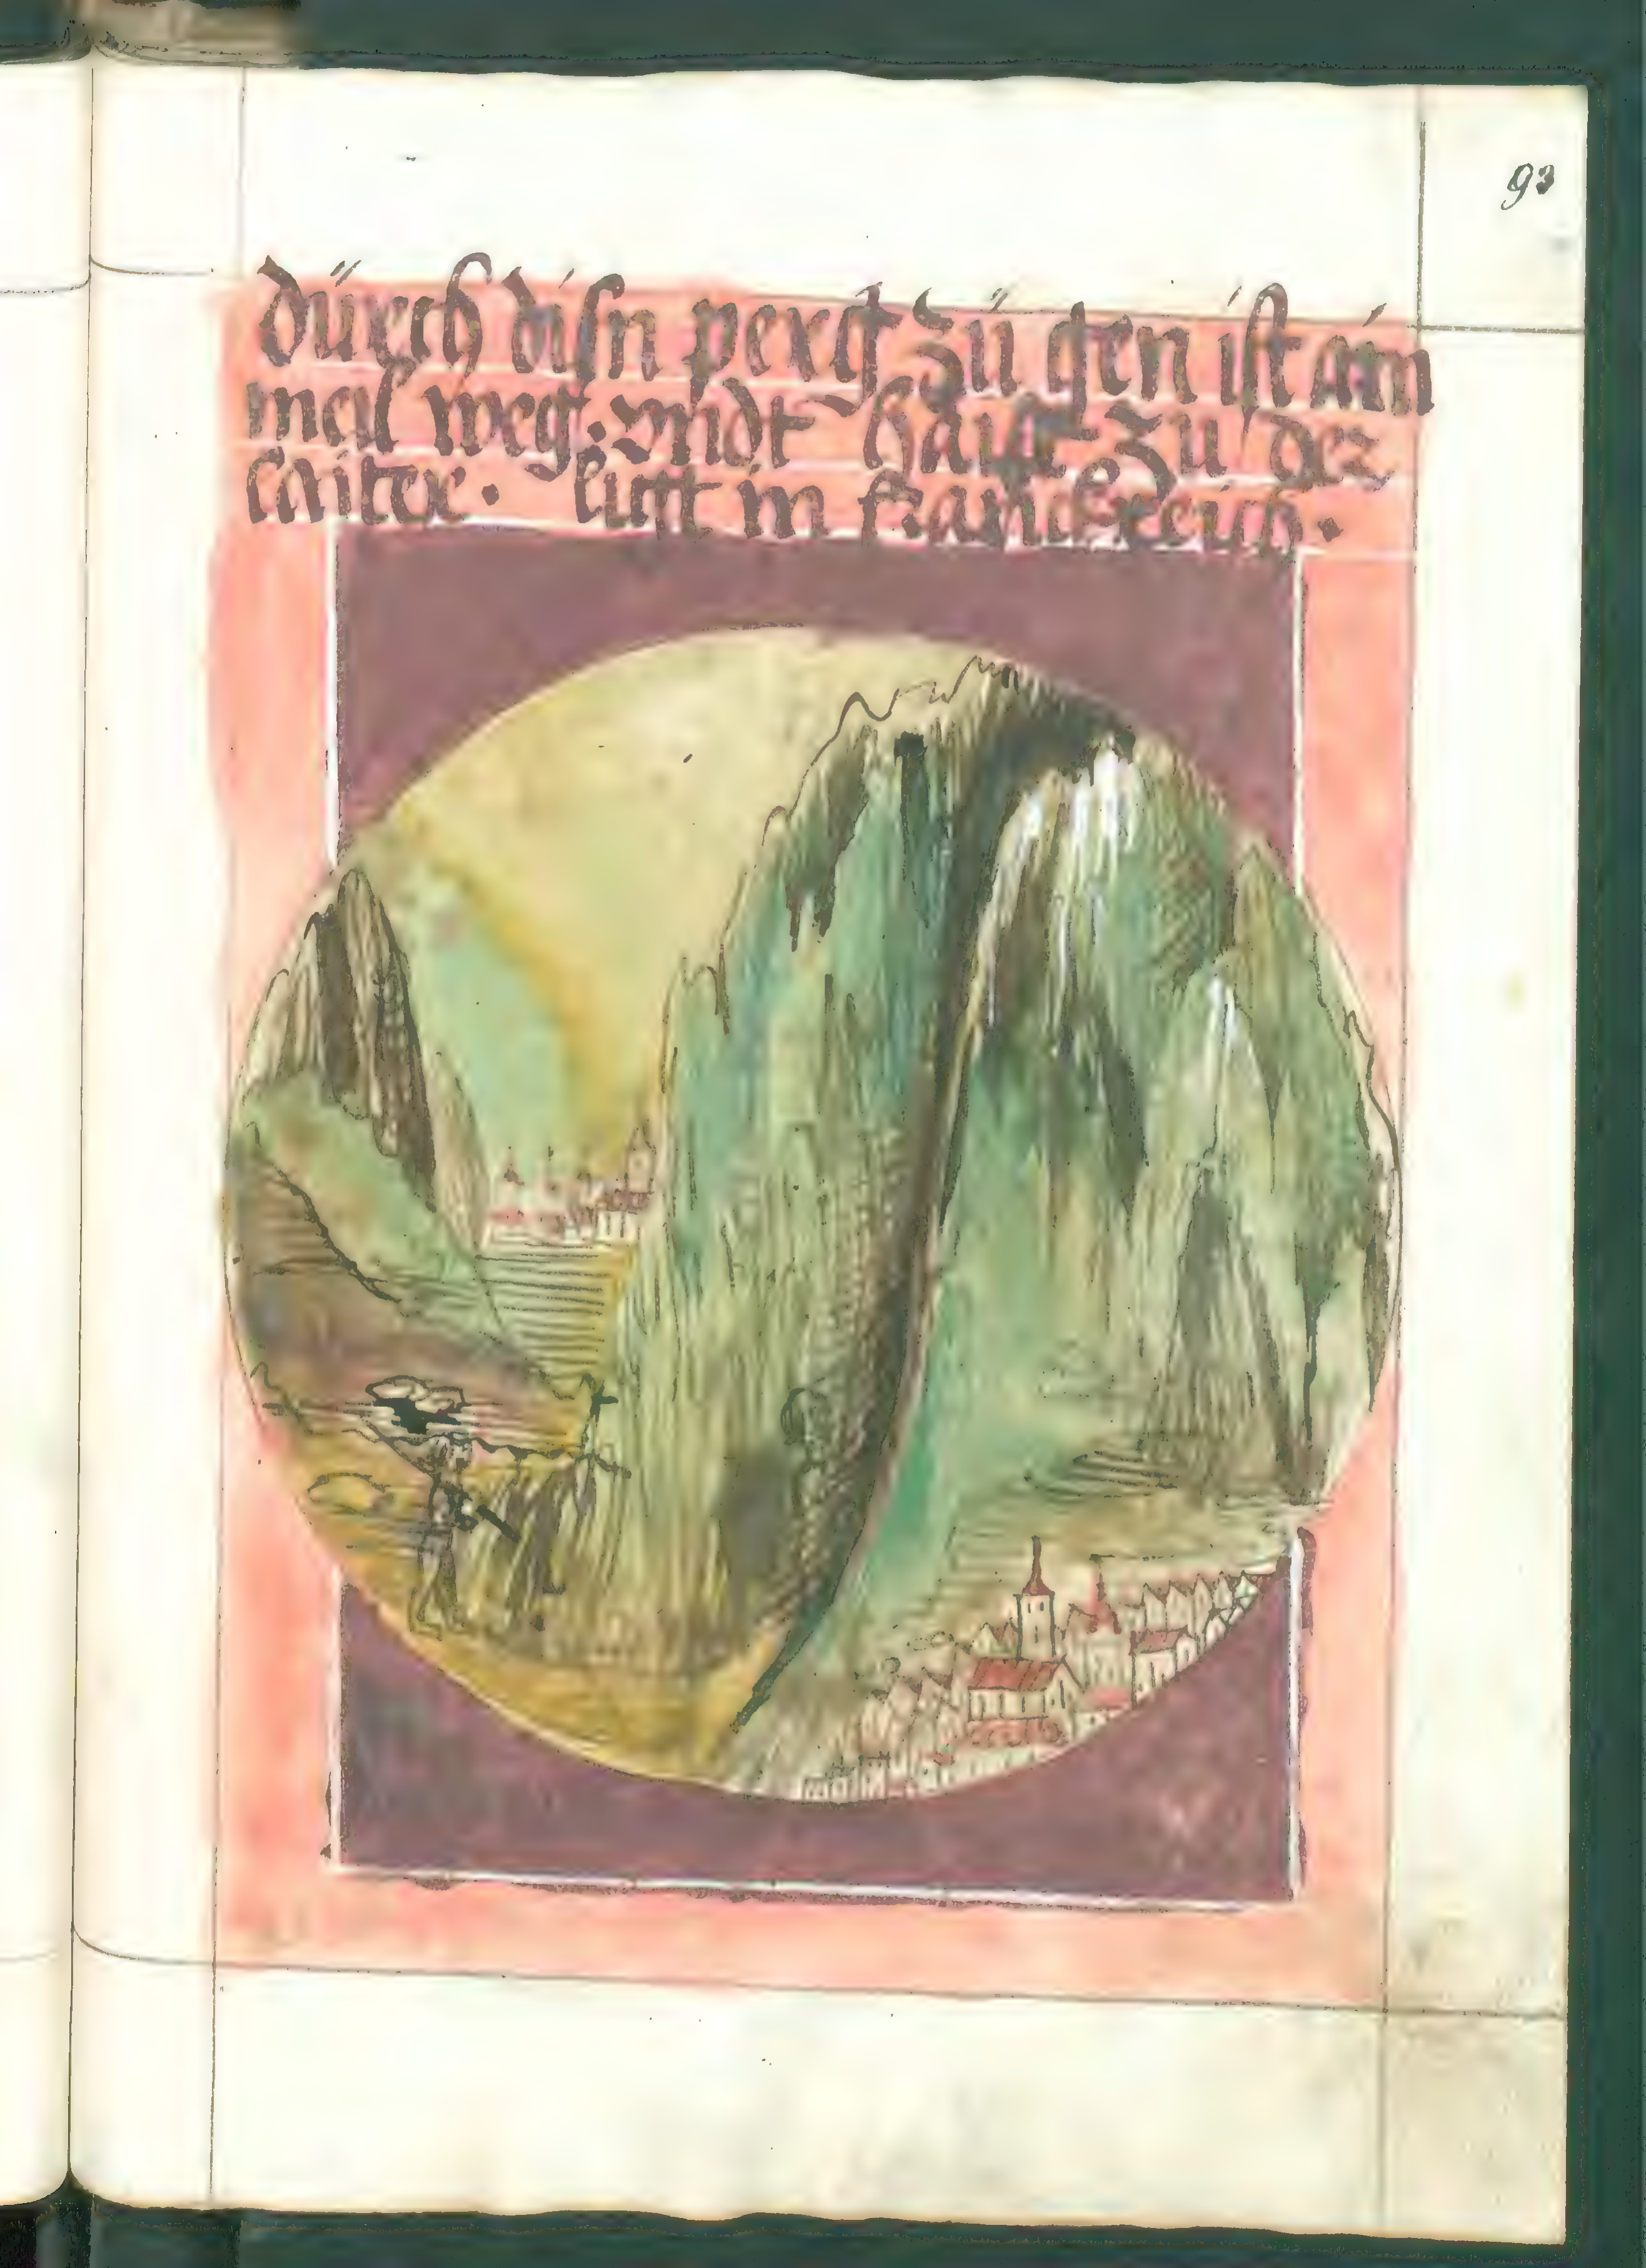 93
dürch disn perg zü gen ist ain
meil weg. vndt haist zu der
laiter. ligt in franckreich.